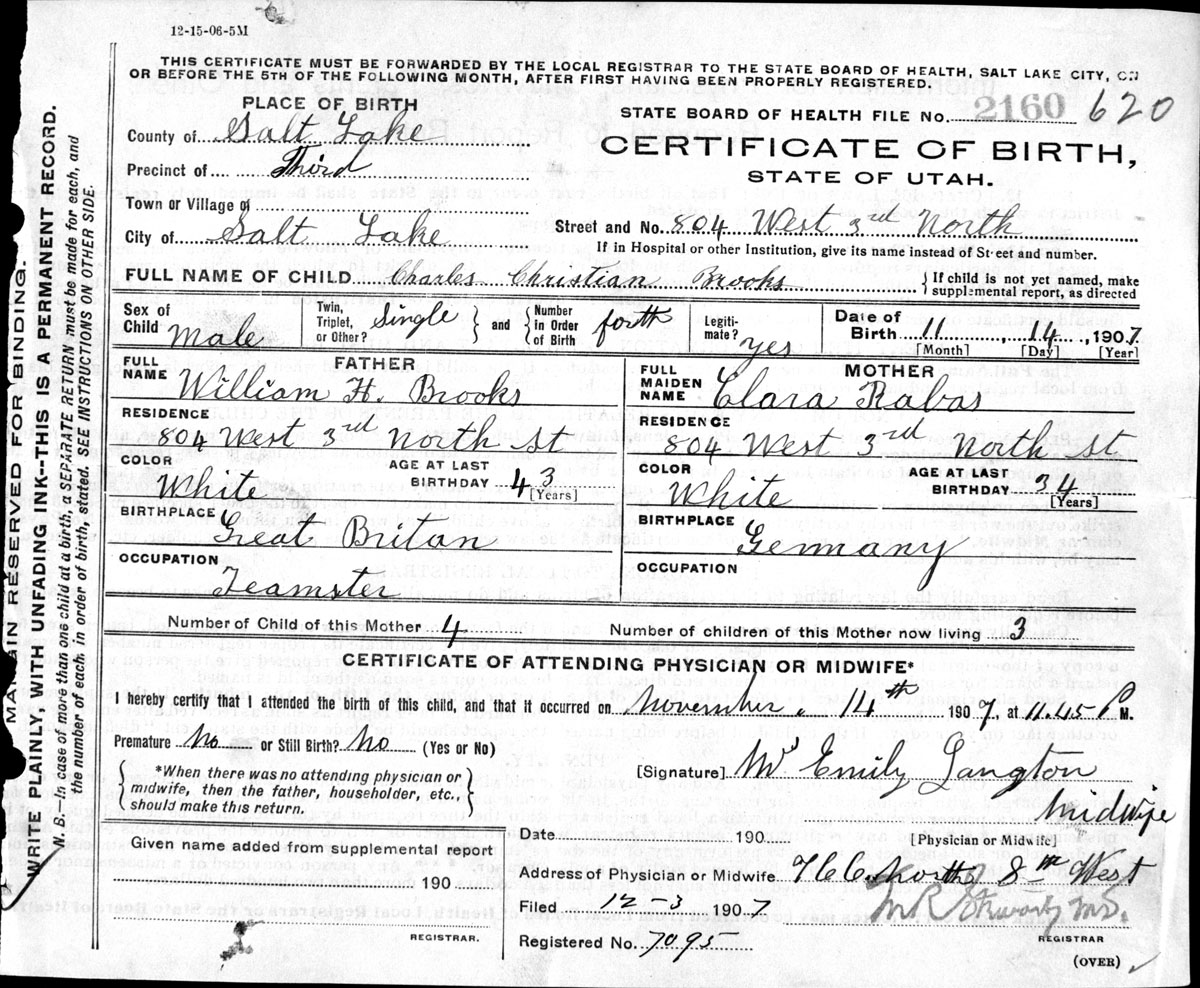 12-15-06-5M
THIS CERTIFICATE MUST BE FORWARDED BY THE LOCAL REGISTRAR TO THE STATE BOARD OF HEALTH, SALT LAKE CITY, ON
OR BEFORE THE 5TH OF THE FOLLOWING MONTH, AFTER FIRST HAVING BEEN PROPERLY REGISTERED.
MARGIN RESERVED FOR BINDING.
WRITE PLAINLY, WITH UNFADING INK--THIS IS A PERMANENT RECORD.
N. B.—In case of more than one child at a birth, a SEPARATE RETURN must be made for each, and
the number of each, in order of birth, stated. SEE INSTRUCTIONS ON OTHER SIDE.
PLACE OF BIRTH
County of Salt Lake
Precinct of Third
Town or Village of
City of Salt Lake
STATE BOARD OF HEALTH FILE No. 2160 620
CERTIFICATE OF BIRTH,
STATE OF UTAH.
Street and No. 804 West 3rd North
If in Hospital or other Institution, give its name instead of Street and number.
FULL NAME OF CHILD Charles Christian Brooks { If child is not yet named, make
supplemental report, as directed
Sex of Child Male
Twin, Triplet, or Other? Single } and { Number in Order of Birth forth
Legitimate? yes
Date of Birth 11, 14, 1907
[Month] [Day] [Year]
FATHER
FULL NAME William H. Brooks
RESIDENCE
804 West 3rd North St
COLOR White AGE AT LAST BIRTHDAY 43 [Years]
BIRTHPLACE Great Britan
OCCUPATION Teamster
MOTHER
FULL MAIDEN NAME Clara Rabas
RESIDENCE
804 West 3rd North St
COLOR White AGE AT LAST BIRTHDAY 34 [Years]
BIRTHPLACE Germany
OCCUPATION
Number of Child of this Mother 4 Number of children of this Mother now living 3
CERTIFICATE OF ATTENDING PHYSICIAN OR MIDWIFE*
I hereby certify that I attended the birth of this child, and that it occurred on November. 14th 1907, at 11.45 P M.
Premature No or Still Birth? No (Yes or No)
{ *When there was no attending physician or
midwife, then the father, householder, etc.,
should make this return. }
[Signature] Mrs Emily Langton
Midwife
[Physician or Midwife]
Date 190
Given name added from supplemental report
190
REGISTRAR.
Address of Physician or Midwife North 8th West
Filed 12-3 1907
Registered No. 7095
REGISTRAR
(OVER)